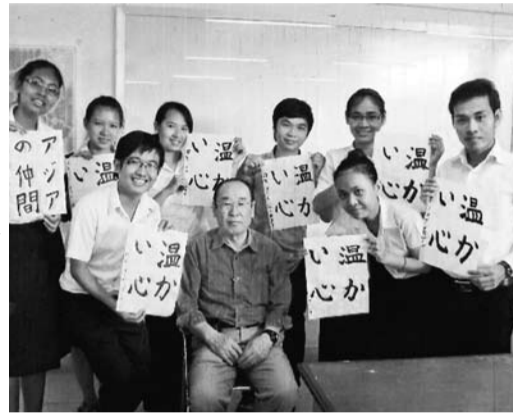 アジア
の仲間
温
い
温か
い心
温か
い心
温か
い心
温か
い心
温か
い心
温か
い心